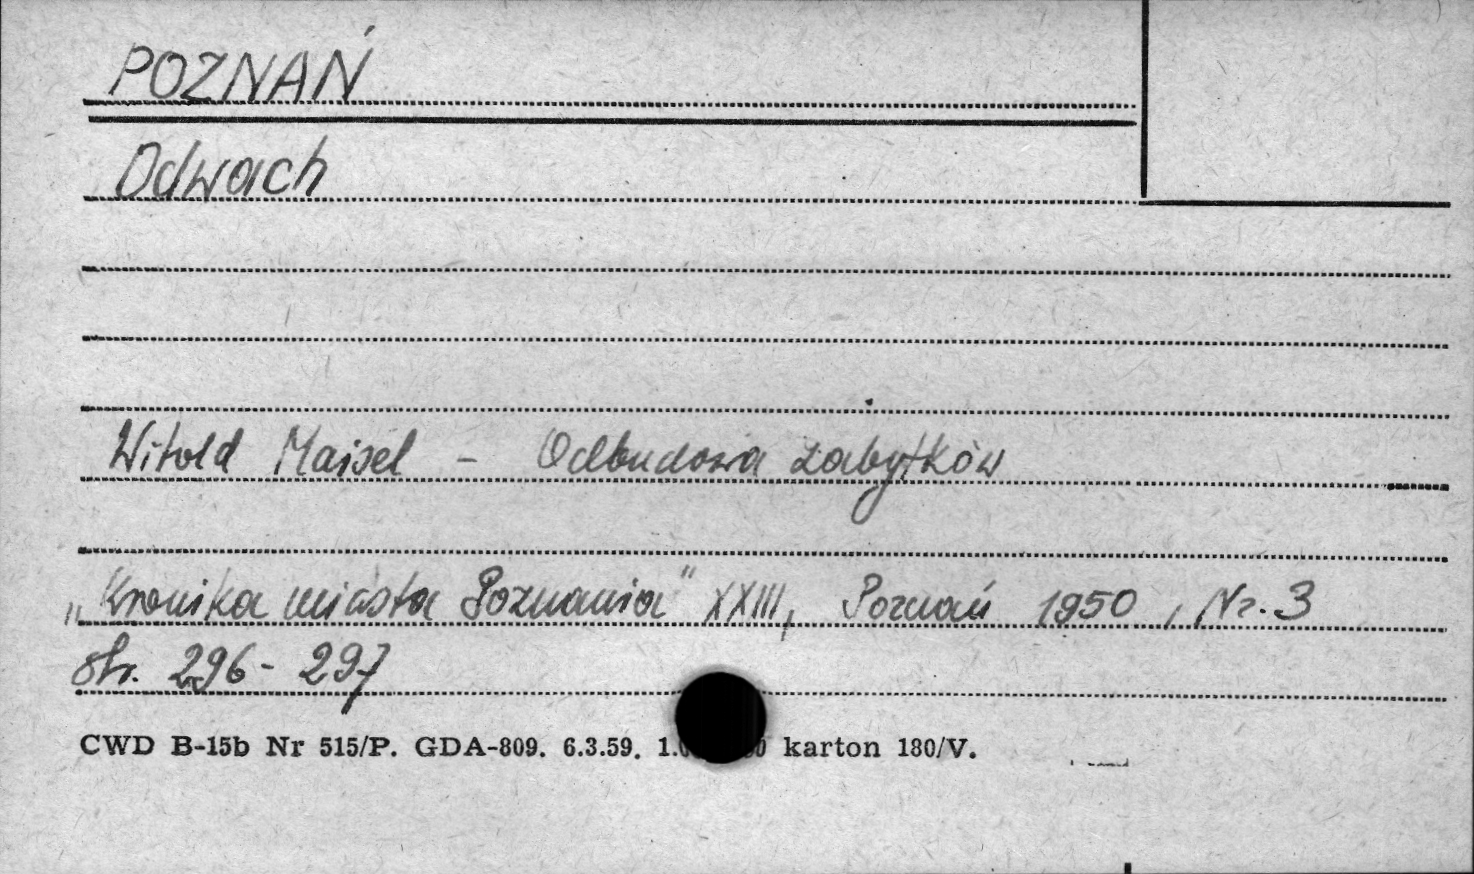 POZNAŃ
Odwach
Witold Maisel - Odbudowa zabytków
„Kronika miasta Poznania" XXIII, Poznań 1950, Nr. 3
str. 296-297
CWD B-15b Nr 515/P. GDA-809. 6.3.59. karton 180/V.